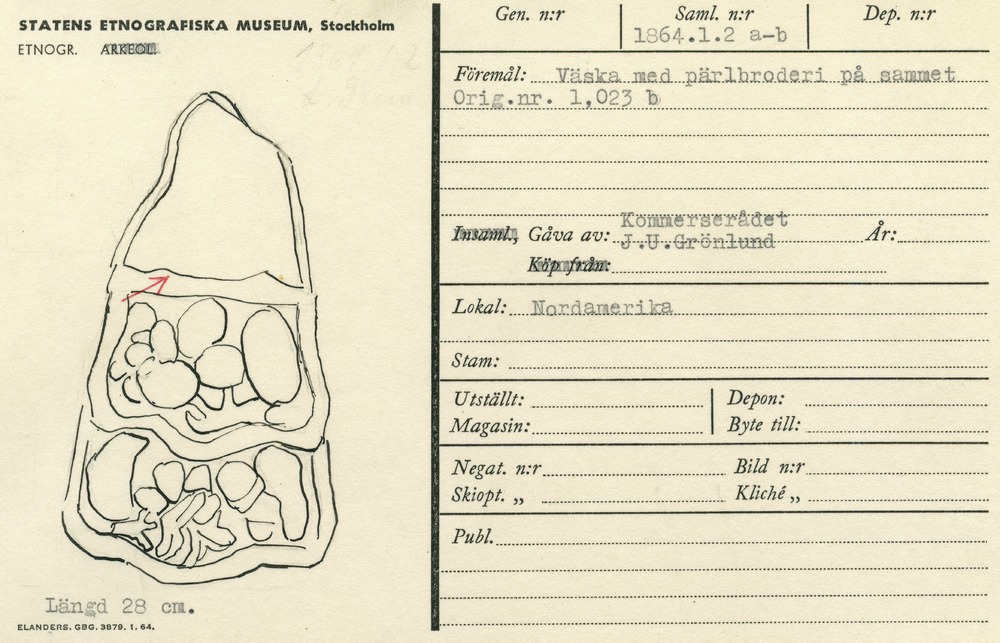 STATENS ETNOGRAFISKA MUSEUM, Stockholm
ETNOGR. ARKEOL.
Längd 28 cm.
ELANDERS. GBG. 3879. 1. 64.
Gen. n:r Saml. n:r Dep. n:r
1864.1.2 a-b
Föremål: Väska med pärlbroderi på sammet
Orig.nr. 1,023 b
Kommerserådet
Insaml., Gåva av: J.U.Grönlund År:
Köp från:
Lokal: Nordamerika
Stam:
Utställt: Depon:
Magasin: Byte till:
Negat. n:r Bild n:r
Skiopt. „ Kliché „
Publ.